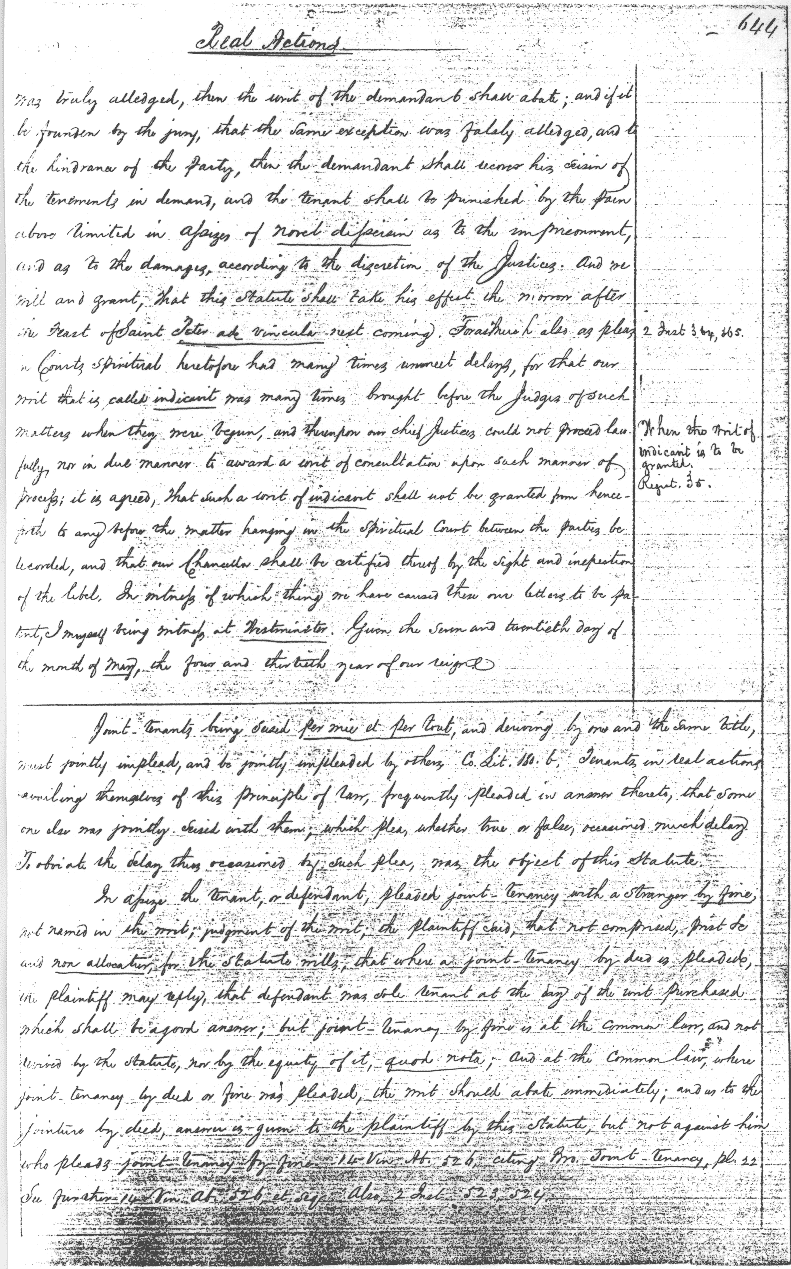 644
Real Actions
was truly alledged, then the writ of the demandant shall abate; and if it
be founden by the jury, that the same exception was falsly alledged, and to
the hindrance of the Party, then the demandant shall recover his seisin of
the tenements in demand, and the tenant shall be punished by the pain
above limited in assizes of novel disseisin as to the imprisonment,
and as to the damages, according to the discretion of the Justices. And we
will and grant, that this Statute shall take his effect the morrow after
the Feast of Saint Peter ad vincula next coming. Forasmuch also as pleas
2 Inst 364, 365.
in Courts Spiritual heretofore had many times unmeet delays, for that our
writ that is called indicavit was many times brought before the Judges of such
matters when they were begun, and thereupon our chief Justices could not proceed law-
When the writ of
indicavit is to be
granted.
Regist. 35.
fully, nor in due manner to award a writ of consultation upon such manner of
process; it is agreed, that such a writ of indicavit shall not be granted from hence-
forth to any before the matter hanging in the Spiritual Court between the parties be
recorded, and that our Chancellor shall be certified thereof by the sight and inspection
of the libel. In witness of which thing we have caused these our letters to be pa-
tent, I myself being witness at Westminster. Given the seven and twentieth day of
the month of May, the four and thirtieth year of our reign
Joint-tenants being seised per mie et per tout, and deriving by one and the same title,
must jointly implead, and be jointly impleaded by others, Co. Lit. 180. b. Tenants, in real actions
availing themselves of this principle of law, frequently pleaded in answer thereto, that some
one else was jointly seised with them; which plea, whether true or false, occasioned much delay
To obviate the delay thus occasioned by such plea, was the object of this Statute.
In assize the tenant, or defendant, pleaded joint-tenancy with a stranger by fine,
not named in the writ; judgment of the writ; the plaintiff said, that not comprised, Prist &c
and non allocatur, for the Statute wills, that where a joint-tenancy by deed is pleaded,
the plaintiff may reply, that defendant was sole tenant at the day of the writ purchased
which shall be a good answer; but joint-tenancy by fine is at the common law, and not
by the Statute, nor by the equity of it, quod nota; And at the Common law, where
joint-tenancy by deed or fine was pleaded, the writ should abate immediately; and as to the
jointure by deed, answer is given to the plaintiff by this Statute, but not against him
who pleads joint-tenancy by fine. 14 Vin. Ab. 526, citing Bro. Joint-tenancy, pl. 22.
See further 14 Vin. Ab. 526, et seq. Also, 2 Inst. 523, 524.